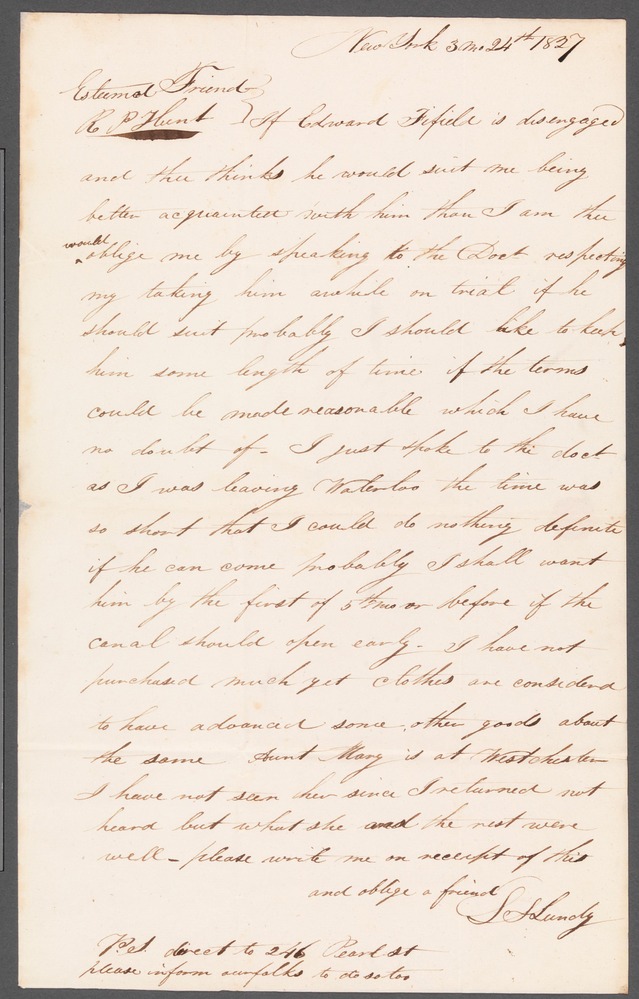 New York 3 mo 24th 1827
Esteemed Friend
R P Hunt } If Edward Fifield is disengaged
and thee thinks he would suit me being
better acquainted with him than I am thee
would
oblige me by speaking to the Doct respecting
my taking him awhile on trial if he
should suit probably I should like to keep
him some length of time if the terms
could be made reasonable which I have
no doubt of - I just spoke to the doct
as I was leaving Waterloo the time was
so short that I could do nothing definite
if he can come probably I shall want
him by the first of 5th mo or before if the
canal should open early - I have not
purchased much yet clothes are considerd
to have advanced some other goods about
the same Aunt Mary is at Westchester
I have not seen her since I returned not
heard but what she and the rest were
well - please write me on receipt of this
and oblige a friend
S S Lundy
P.S. direct to 246 Pearl st
please inform our folks to do so too